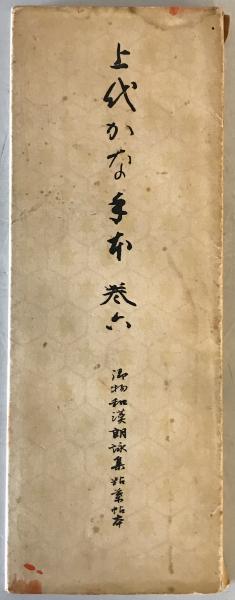 上代かなの手本 巻六
御物和漢朗詠集粘葉帖本